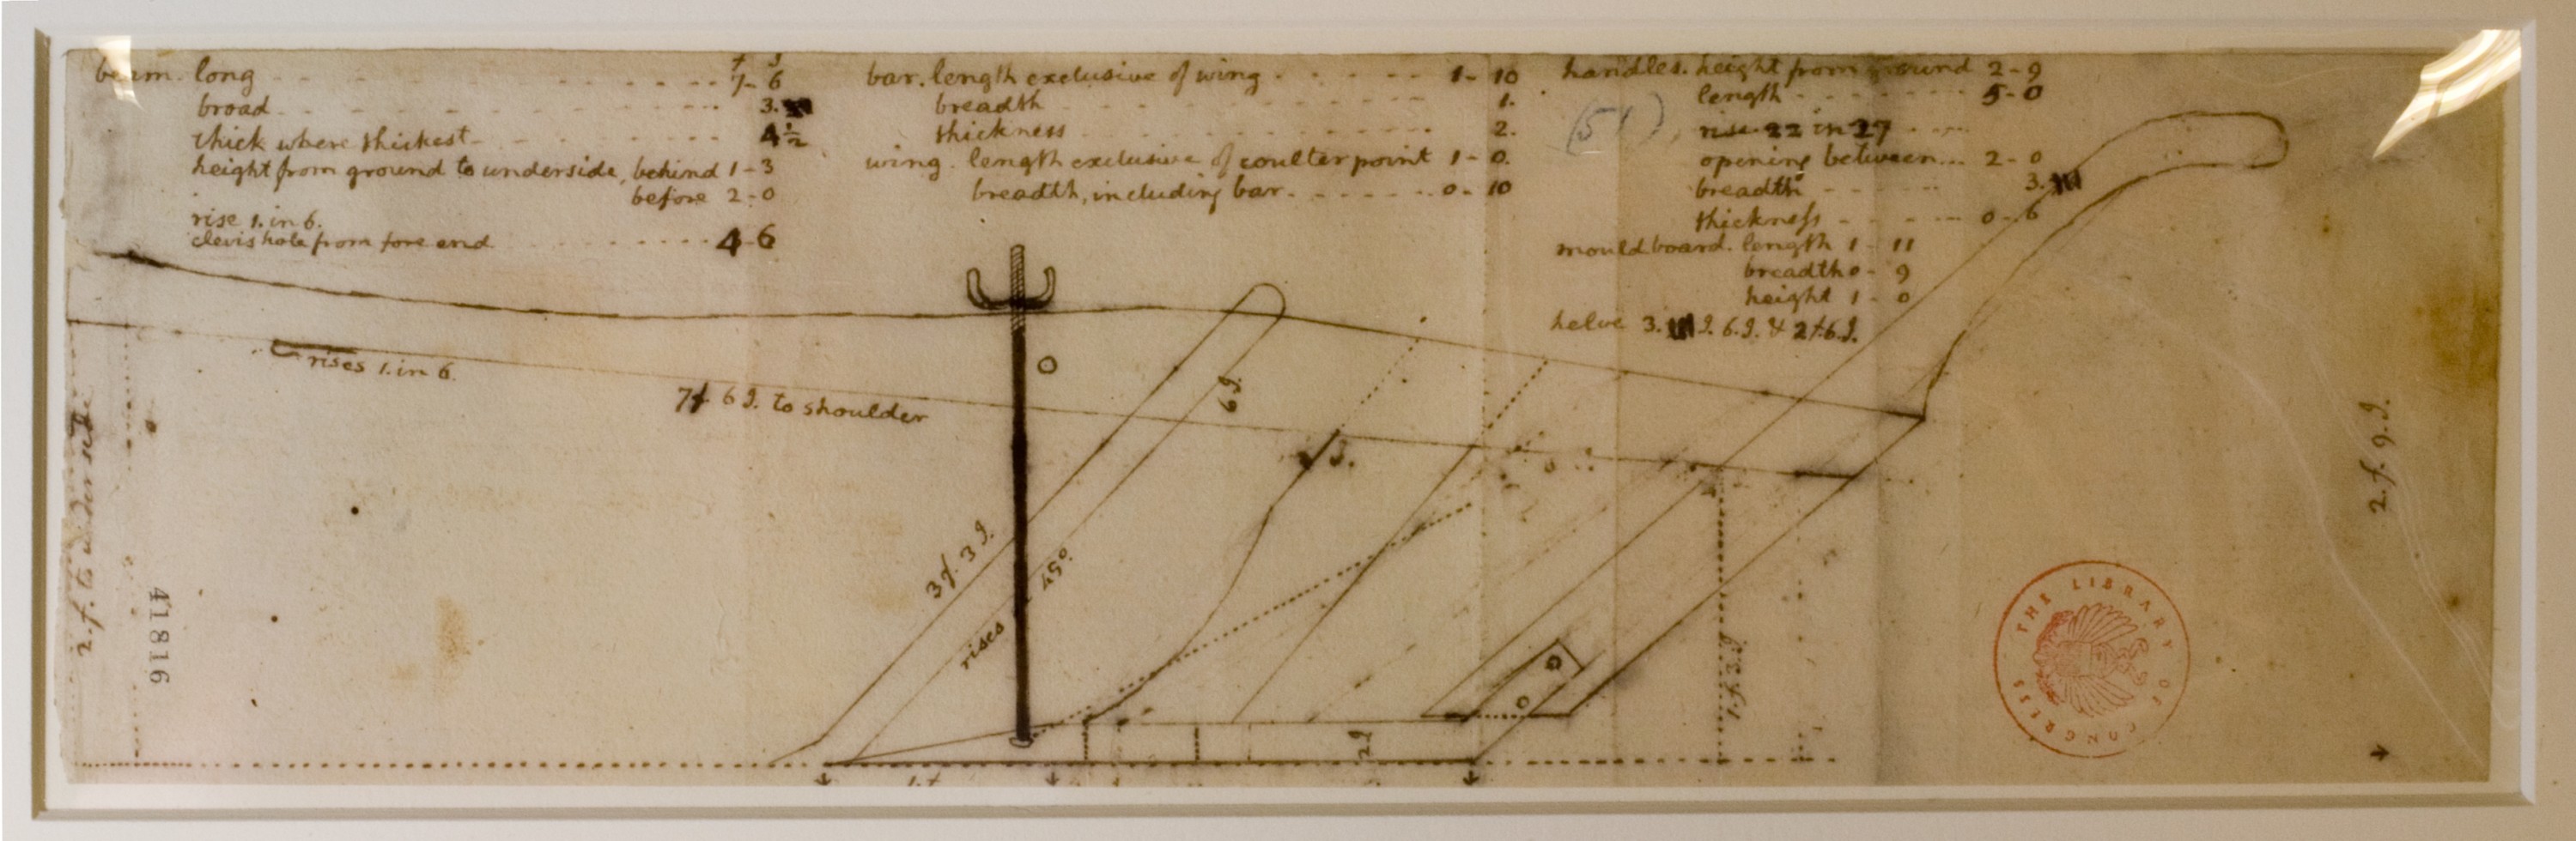 f I
beam. long 7-6
broad 3.
thick where thickest 4½
height from ground to underside, behind 1-3
before 2-0
rise 1. in 6.
clevis hole from fore end 4-6
bar. length exclusive of wing 1-10
breadth 1.
thickness 2.
wing. length exclusive of coulter point 1-0.
breadth, including bar 0-10
(51)
handles. height from ground 2-9
length 5-0
rise 22 in 27
opening between 2-0
breadth 3.
thickness 0-6
mouldboard. length 1-11
breadth 0-9
height 1-0
helve 3. I. 6.I. & 2f.6.I.
rises 1. in 6.
7f. 6 I. to shoulder
6 I.
3f. 3 I.
rises 45°
2.f. to under side
41816
2 I
1.f
1.f. 3.I
2.f. 9.I.
THE LIBRARY OF CONGRESS